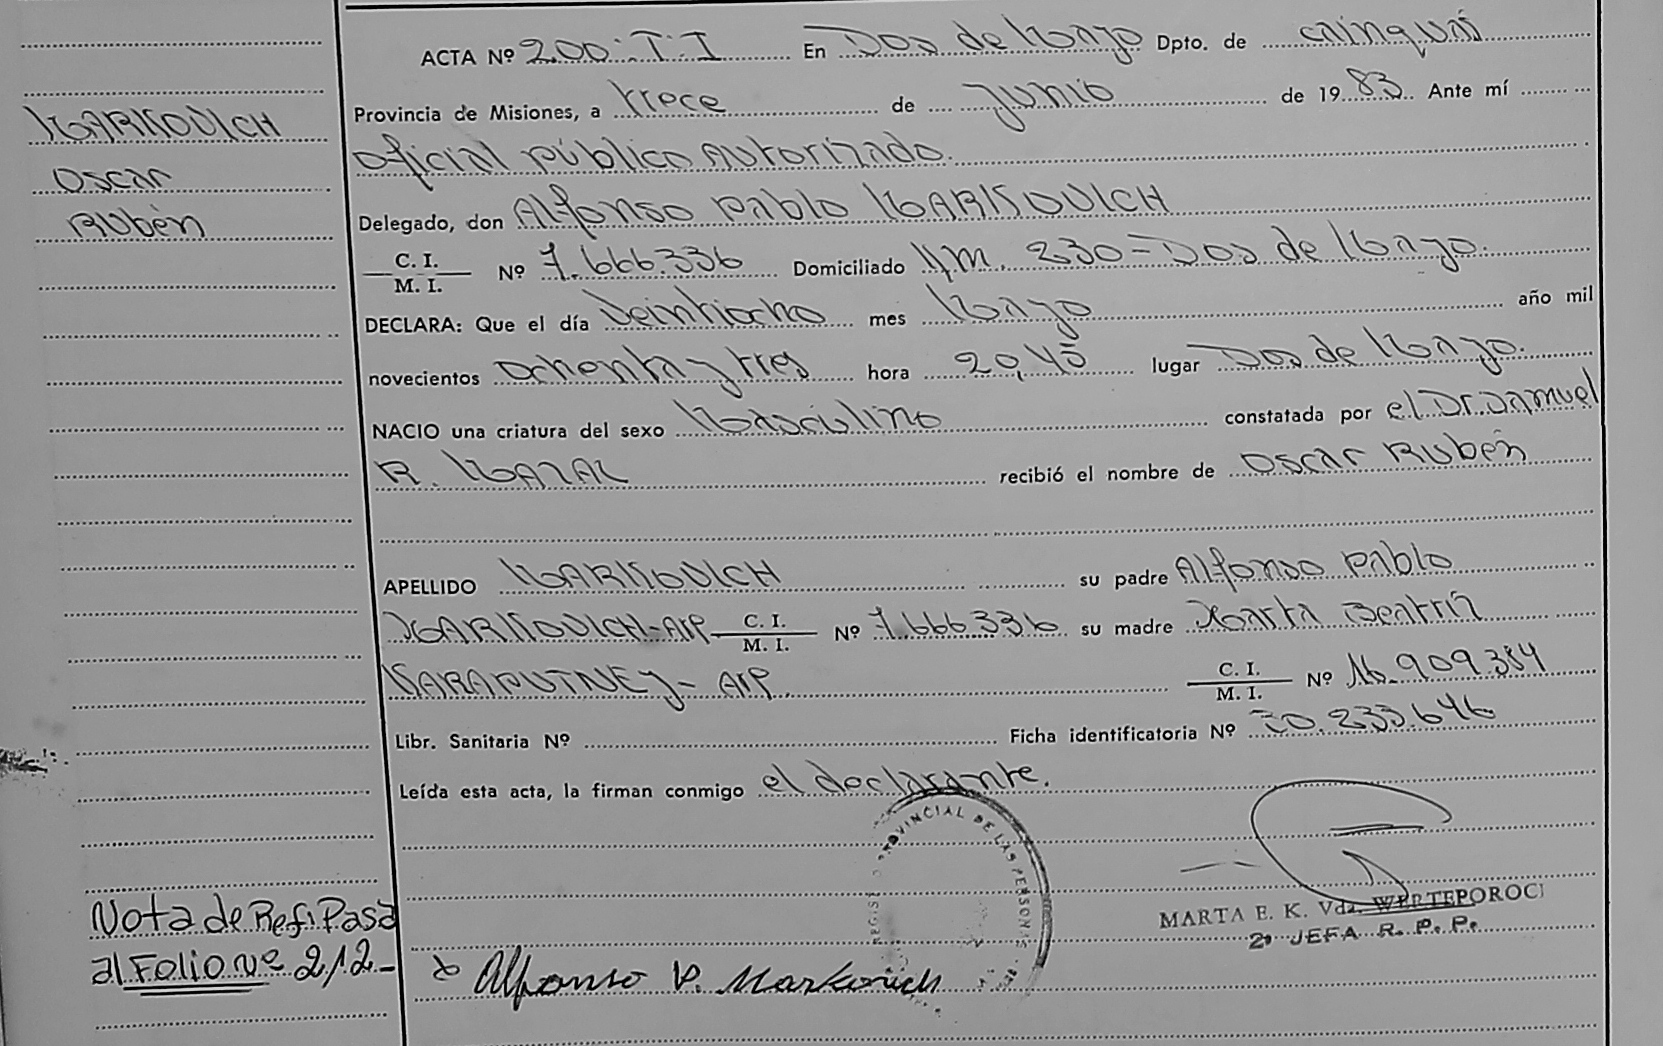 ACTA Nº 200: T. I En Dos de Mayo Dpto. de Cainguás
Provincia de Misiones, a trece de Junio de 1983. Ante mí
MARKOVICH
Oficial público Autorizado.
Oscar
Rubén
Delegado, don Alfonso Pablo MARKOVICH
C. I.
M. I. Nº 7.666.336 Domiciliado Km. 230 - Dos de Mayo.
DECLARA: Que el día Veintiocho mes Mayo año mil
novecientos ochenta y tres hora 20,45 lugar Dos de Mayo.
NACIO una criatura del sexo Masculino constatada por el Dr. Samuel
R. MAZAL recibió el nombre de Oscar Rubén
APELLIDO MARKOVICH su padre Alfonso Pablo
MARKOVICH-Arg. C. I.
M. I. Nº 7.666.336 su madre Marta Beatriz
KARAPUTNEY- Arg. C. I.
M. I. Nº 16.909.384
Libr. Sanitaria Nº Ficha identificatoria Nº 30.233.646
Leída esta acta, la firman conmigo el declarante.
PROVINCIAL DE LAS PERSONAS
MARTA E. K. Vda. WERTEPOROCI
2º JEFA R. P. P.
Nota de Ref: Pasa
al Folio Nº 212-
Alfonso P. Markovich